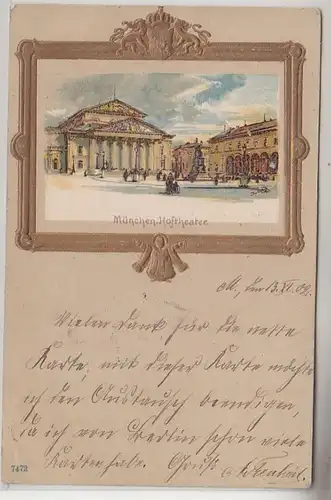 München. Hoftheater
M., den 13. XI. 02.
Vielen Dank für die nette
Karte, mit dieser Karte möchte
ich den Austausch beendigen,
da ich von Berlin schon viele
Karten habe. Gruß
7472